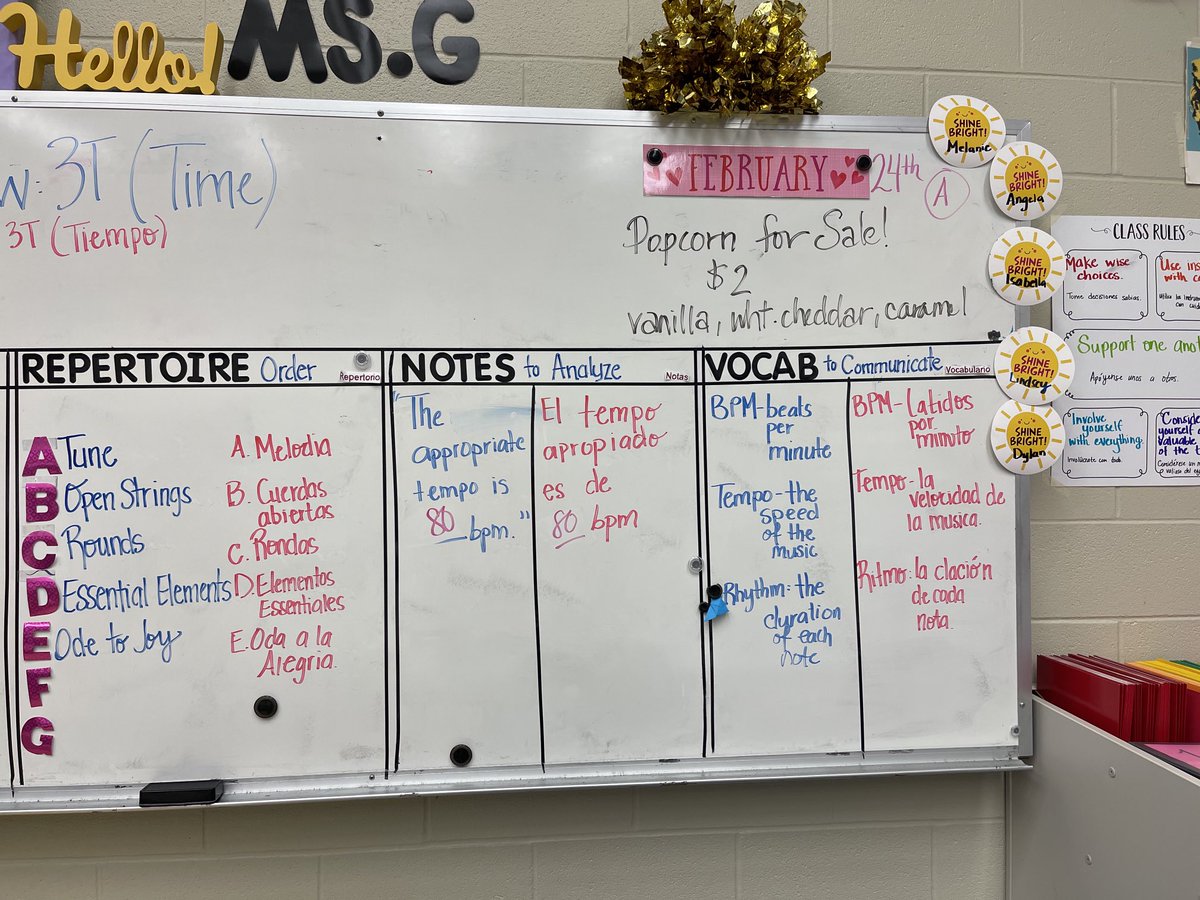 Hello! MS.G
W: 3T (Time)
3T (Tiempo)
FEBRUARY 24th
A
Popcorn for Sale!
$2
vanilla, wht. cheddar, caramel
SHINE BRIGHT!
Melanie
SHINE BRIGHT!
Angela
SHINE BRIGHT!
Isabella
SHINE BRIGHT!
Lindsey
SHINE BRIGHT!
Dylan
CLASS RULES
Make wise
choices.
Tome decisiones sabias.
Use ins
with c
Support one anot
Apóyense unos a otros.
Involve
yourself
with everything.
Involúcrate con todo.
Conside
yourself
valuable
of the t
REPERTOIRE Order Repertorio
A Tune
B Open Strings
C Rounds
D Essential Elements
E Ode to Joy
F
G
A. Melodia
B. Cuerdas
abiertas
C. Rondas
D. Elementos
Essentiales
E. Oda a la
Alegria.
NOTES to Analyze Notas
"The
appropriate
tempo is
80 bpm."
El tempo
apropiado
es de
80 bpm
VOCAB to Communicate Vocabulario
BPM-beats
per
minute
Tempo-the
speed
of the
music
Rhythm: the
duration
of each
note
BPM-Latidos
por
minuto
Tempo-la
velocidad de
la musica.
Ritmo: la clación
de cada
nota.